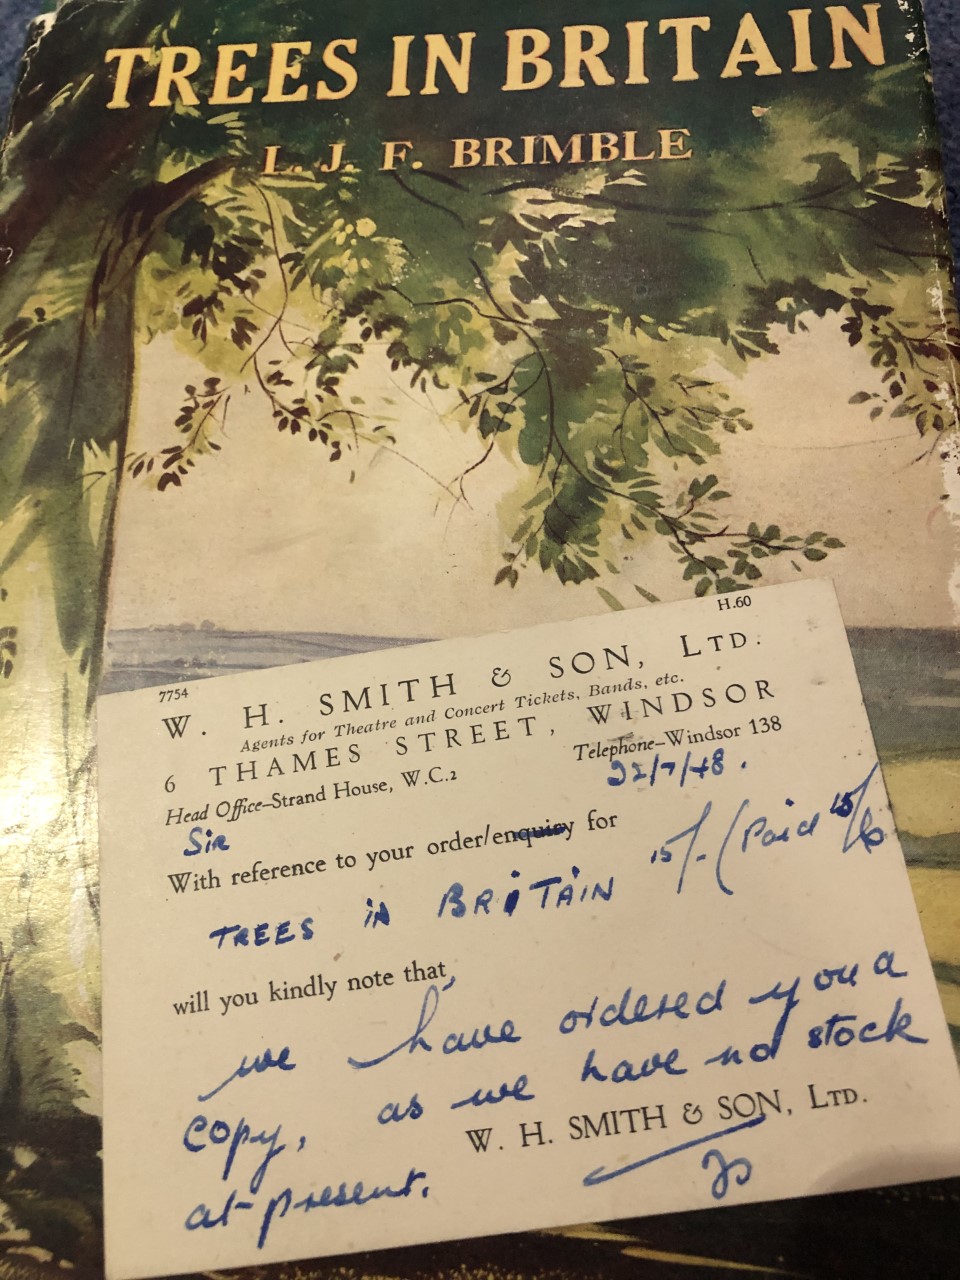 TREES IN BRITAIN
L. J. F. BRIMBLE
H.60
7754
W. H. SMITH & SON, LTD.
Agents for Theatre and Concert Tickets, Bands, etc.
6 THAMES STREET, WINDSOR
Head Office–Strand House, W.C.2
Telephone–Windsor 138
/7/48.
Sir
With reference to your order/enquiry for
TREES IN BRITAIN 15/- (Paid 15/6
will you kindly note that,
we have ordered you a
copy, as we have no stock
W. H. SMITH & SON, LTD.
at present.